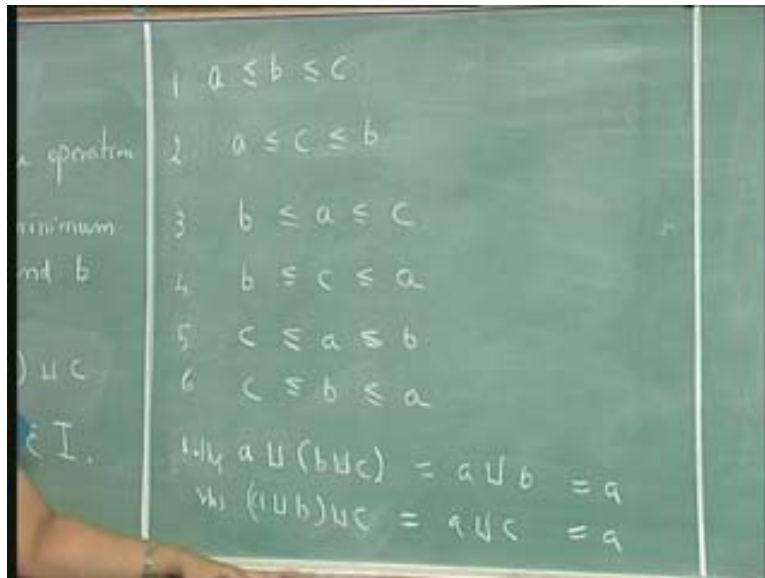 operation
minimum
and b
) ⊔ c
∈ I.
1 a ≤ b ≤ c
2 a ≤ c ≤ b
3 b ≤ a ≤ c
4 b ≤ c ≤ a
5 c ≤ a ≤ b
6 c ≤ b ≤ a
a ⊔ (b ⊔ c) = a ⊔ b = a
rhs (a ⊔ b) ⊔ c = a ⊔ c = a